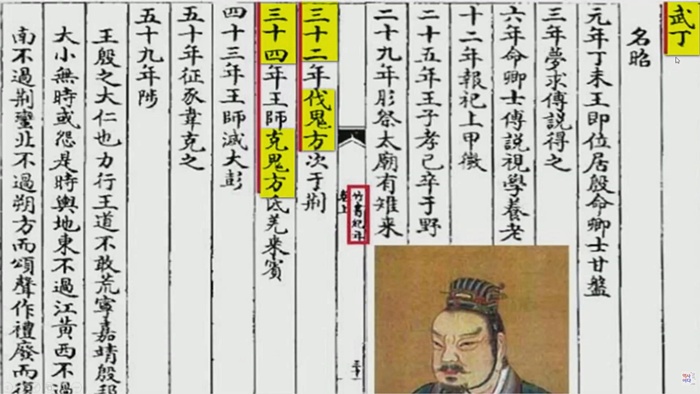 武丁
名昭
元年丁未王即位居殷命卿士甘盤
三年夢求傅說得之
六年命卿士傅說視學養老
十二年報祀上甲微
二十五年王子孝己卒于野
二十九年肜祭太廟有雉来
竹書紀年
卷上
三十二年伐鬼方次于荆
三十四年王師克鬼方氐羌来賓
四十三年王師滅大彭
五十年征豕韋克之
五十九年陟
王殷之大仁也力行王道不敢荒寧嘉靖殷邦
大小無時或怨是時輿地東不過江黃西不過
南不過荆蠻北不過朔方而頌聲作禮廢而復